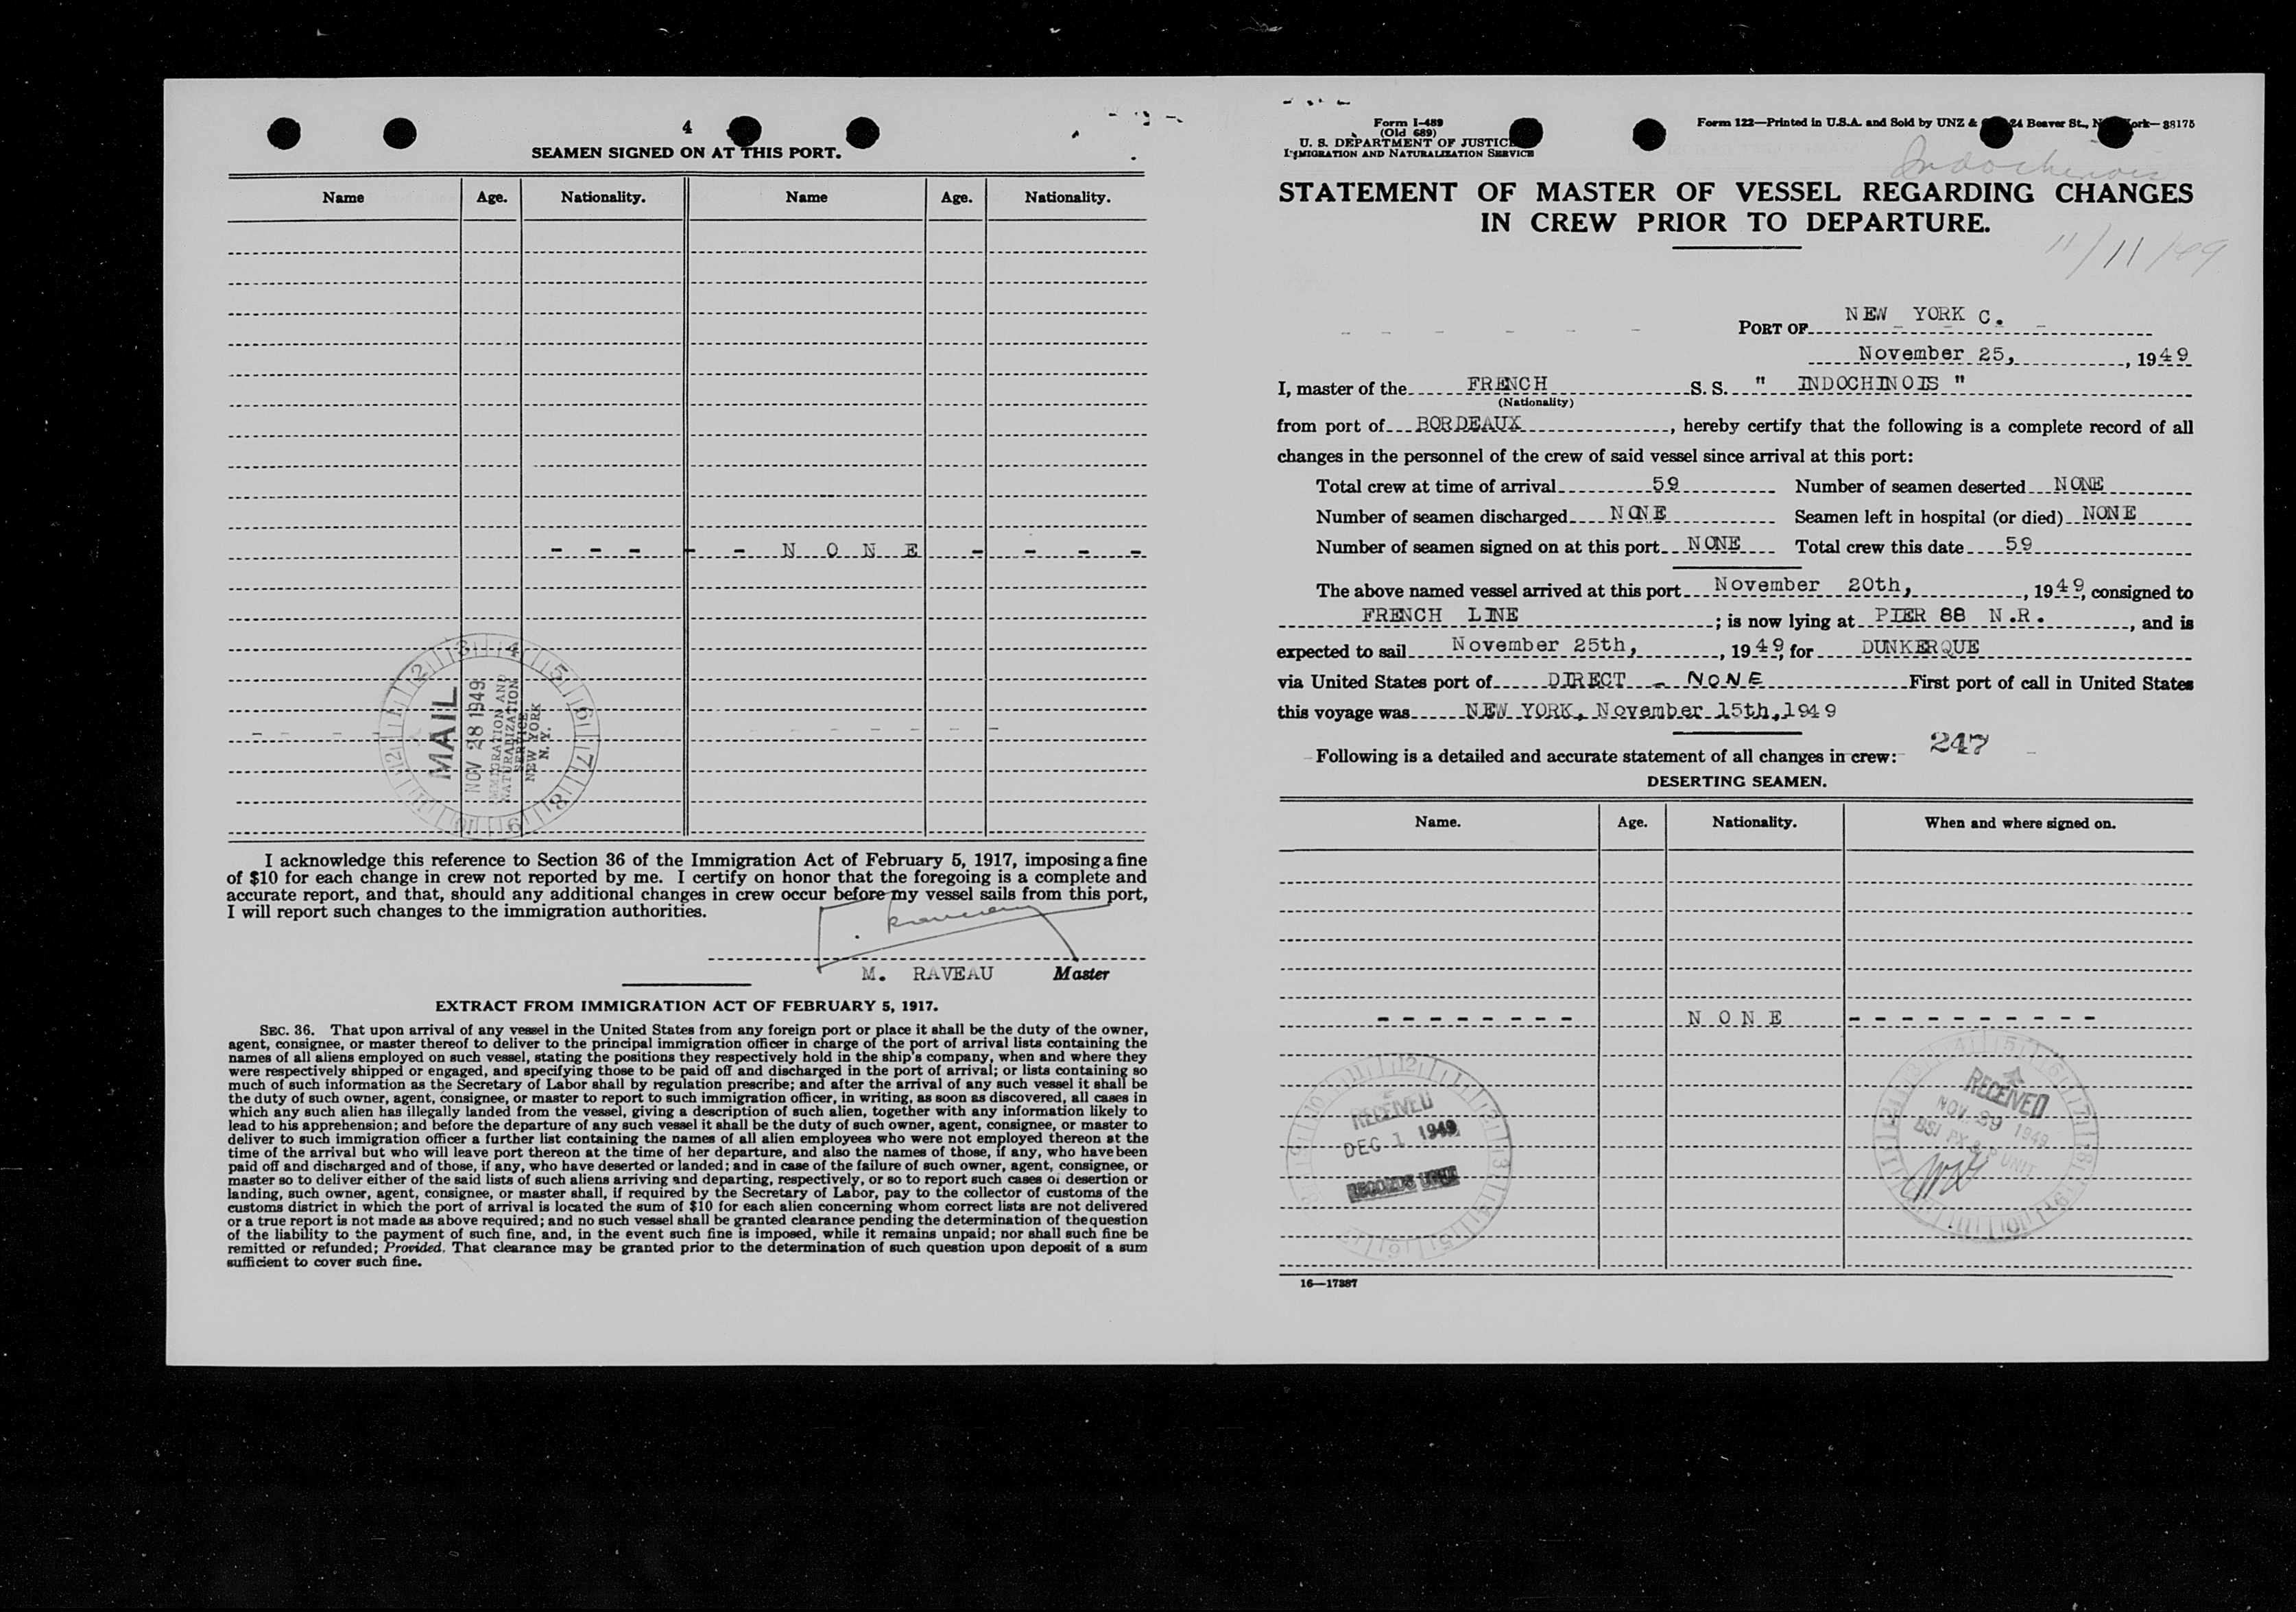 4
SEAMEN SIGNED ON AT THIS PORT.
Name Age. Nationality. Name Age. Nationality.
- - - - - N O N E - - - -
MAIL
NOV 28 1949
IMMIGRATION AND
NATURALIZATION
SERVICE
NEW YORK
N. Y.
I acknowledge this reference to Section 36 of the Immigration Act of February 5, 1917, imposing a fine
of $10 for each change in crew not reported by me. I certify on honor that the foregoing is a complete and
accurate report, and that, should any additional changes in crew occur before my vessel sails from this port,
I will report such changes to the immigration authorities.
M. RAVEAU Master
EXTRACT FROM IMMIGRATION ACT OF FEBRUARY 5, 1917.
SEC. 36. That upon arrival of any vessel in the United States from any foreign port or place it shall be the duty of the owner,
agent, consignee, or master thereof to deliver to the principal immigration officer in charge of the port of arrival lists containing the
names of all aliens employed on such vessel, stating the positions they respectively hold in the ship's company, when and where they
were respectively shipped or engaged, and specifying those to be paid off and discharged in the port of arrival; or lists containing so
much of such information as the Secretary of Labor shall by regulation prescribe; and after the arrival of any such vessel it shall be
the duty of such owner, agent, consignee, or master to report to such immigration officer, in writing, as soon as discovered, all cases in
which any such alien has illegally landed from the vessel, giving a description of such alien, together with any information likely to
lead to his apprehension; and before the departure of any such vessel it shall be the duty of such owner, agent, consignee, or master to
deliver to such immigration officer a further list containing the names of all alien employees who were not employed thereon at the
time of the arrival but who will leave port thereon at the time of her departure, and also the names of those, if any, who have been
paid off and discharged and of those, if any, who have deserted or landed; and in case of the failure of such owner, agent, consignee, or
master so to deliver either of the said lists of such aliens arriving and departing, respectively, or so to report such cases of desertion or
landing, such owner, agent, consignee, or master shall, if required by the Secretary of Labor, pay to the collector of customs of the
customs district in which the port of arrival is located the sum of $10 for each alien concerning whom correct lists are not delivered
or a true report is not made as above required; and no such vessel shall be granted clearance pending the determination of the question
of the liability to the payment of such fine, and, in the event such fine is imposed, while it remains unpaid; nor shall such fine be
remitted or refunded; Provided. That clearance may be granted prior to the determination of such question upon deposit of a sum
sufficient to cover such fine.
Form I-489
(Old 689)
U. S. DEPARTMENT OF JUSTICE
IMMIGRATION AND NATURALIZATION SERVICE
Form 122—Printed in U.S.A. and Sold by UNZ & 24 Beaver St., N ork—38175
Indochinois
STATEMENT OF MASTER OF VESSEL REGARDING CHANGES
IN CREW PRIOR TO DEPARTURE.
11/11/49
PORT OF NEW YORK C.
November 25, , 1949
I, master of the FRENCH S. S. " INDOCHINOIS "
(Nationality)
from port of BORDEAUX , hereby certify that the following is a complete record of all
changes in the personnel of the crew of said vessel since arrival at this port:
Total crew at time of arrival 59 Number of seamen deserted NONE
Number of seamen discharged NONE Seamen left in hospital (or died) NONE
Number of seamen signed on at this port NONE Total crew this date 59
The above named vessel arrived at this port November 20th, , 1949, consigned to
FRENCH LINE ; is now lying at PIER 88 N.R. , and is
expected to sail November 25th, , 1949, for DUNKERQUE
via United States port of DIRECT - NONE First port of call in United States
this voyage was NEW YORK, November 15th,1949
Following is a detailed and accurate statement of all changes in crew: 247
DESERTING SEAMEN.
Name. Age. Nationality. When and where signed on.
- - - - - - - - N O N E - - - - - - - - - -
RECEIVED
DEC 1 1949
RECORDS UNIT
RECEIVED
NOV 29 1949
16—17387